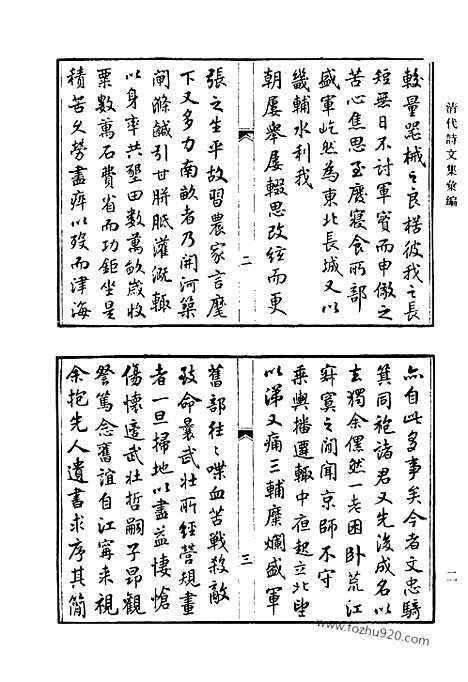 清代詩文集彙編
較量器械之良楛彼我之長
短無日不討軍實而申儆之
苦心焦思至廢寢食所部
盛軍屹然為東北長城又以
畿輔水利我
朝屢舉屢輟思改絃而更
二
張之生平故習農家言麾
下又多力南畝者乃開河築
閘滌鹹引甘胼胝灌溉輒
以身率共墾田數萬畝歲收
粟數萬石費省而功鉅坐是
積苦久勞盡瘁以歿而津海
亦自此多事矣今者文忠騎
箕同袍諸君又先後成名以
去獨余傫然一老困臥荒江
寂寞之濱聞京師不守
乘輿播遷輒中夜起立北望
以涕又痛三輔糜爛盛軍
三
舊部往往喋血苦戰殺敵
致命曩武壯所經營規畫
者一旦掃地以盡益悽愴
傷懷適武壯哲嗣子昂觀
詧篤念舊誼自江甯來視
余抱先人遺書求序其簡
一一
www.fozhu920.com